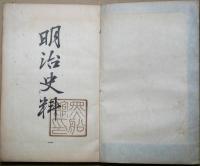 明治史料
一